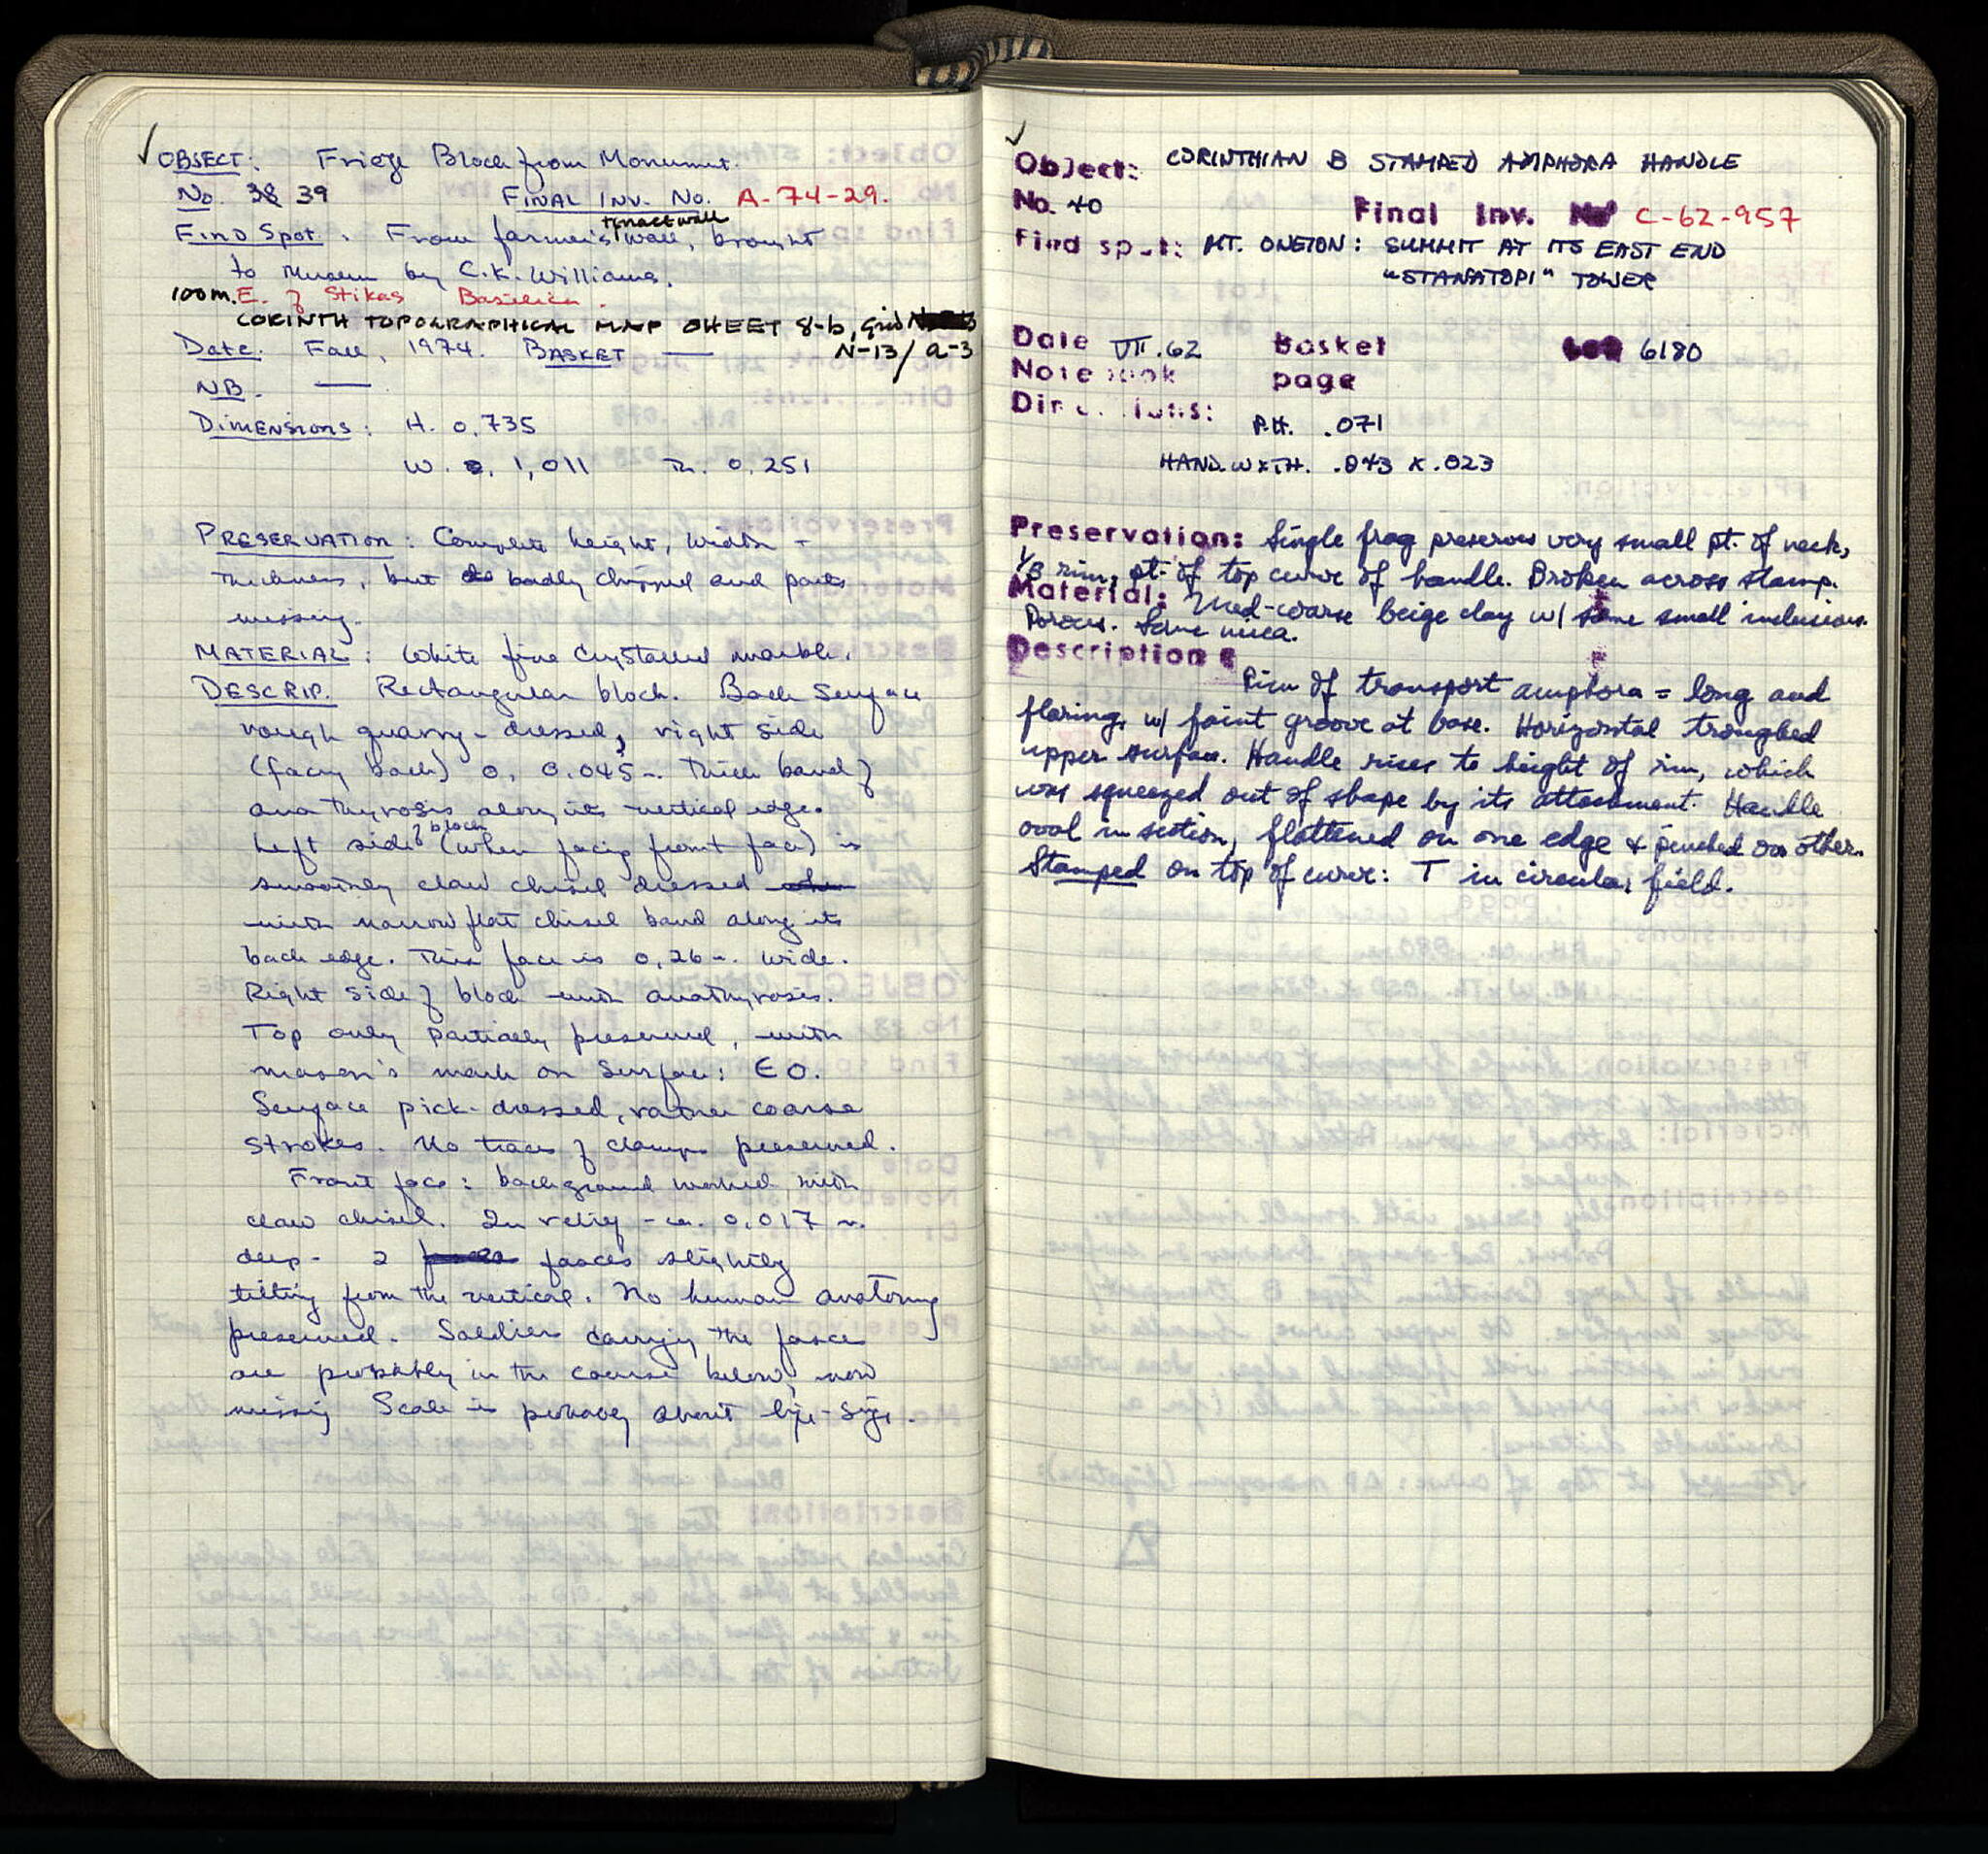 ✓ OBJECT: Frieze Block from Monument.
No. 38 39 FINAL INV. No. A-74-29.
Find Spot. From farmer's wall, brought
to Museum by C.K. Williams.
100m. E. of Stikas Basilica.
CORINTH TOPOGRAPHICAL MAP SHEET 8-b, grid
Date: Fall, 1974. BASKET — N-13/a-3
NB. —
DIMENSIONS: H. 0,735
W. 1,011 Th. 0,251
PRESERVATION: Complete height, width +
thickness, but badly chipped and parts
missing.
MATERIAL: White fine crystalled marble.
DESCRIP. Rectangular block. Back surface
rough quarry-dressed, right side
(facing back) 0, 0.045 m. thick band of
anathyrosis along its vertical edge.
Left side of block (when facing front face) is
smoothly claw chisel dressed
with narrow flat chisel band along its
back edge. This face is 0,26 m. wide.
Right side of block with anathyrosis.
Top only partially preserved, with
mason's mark on surface: ЄO.
Surface pick-dressed, rather coarse
strokes. No traces of clamps preserved.
Front face: background worked with
claw chisel. In relief - ca. 0,017 m.
deep - 2 fasces slightly
tilting from the vertical. No human anatomy
preserved. Soldiers carrying the fasces
are probably in the course below, now
missing Scale is probably about life-size.
✓
Object: CORINTHIAN B STAMPED AMPHORA HANDLE
No. 40 Final Inv. No C-62-957
Find spot: MT. ONEION: SUMMIT AT ITS EAST END
"STANATOPI" TOWER
Date VII.62 Basket Lot 6180
Notebook page
Dimensions: P.H. .071
HAND. W x TH. .043 x .023
Preservation: Single frag preserves very small pt. of neck,
1/3 rim, pt. of top curve of handle. Broken across stamp.
Material: Med-coarse beige clay w/ some small inclusions.
Porous. Some mica.
Description:
Rim of transport amphora = long and
flaring, w/ faint groove at base. Horizontal troughed
upper surface. Handle rises to height of rim, which
was squeezed out of shape by its attachment. Handle
oval in section, flattened on one edge + pinched on other.
Stamped on top of curve: T in circular field.